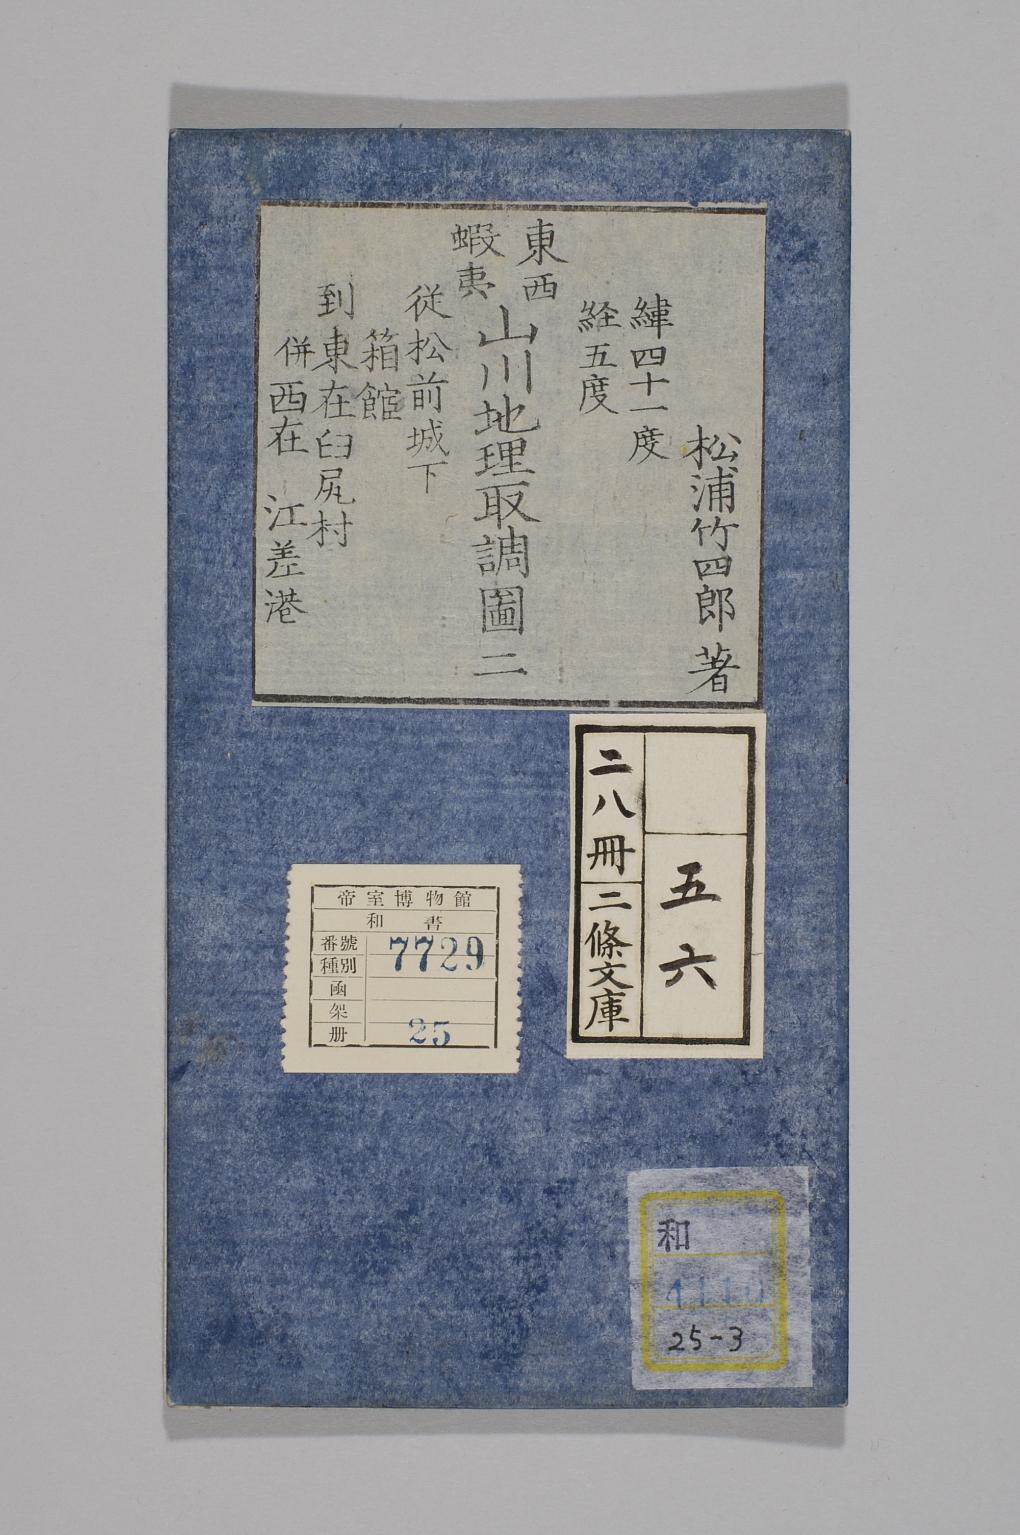 松浦竹四郎 著
緯四十一度
経五度
東西
蝦夷
山川地理取調圖 二
従松前城下
箱館
到東在臼尻村
併西在 江差港
五六
二八冊
二條文庫
帝室博物館
和書
番號 7729
種別
函
架
册 25
和
25-3